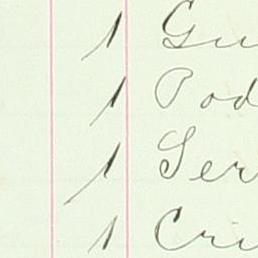 1 Gu
1 Pod
1 Ser
1 Cri